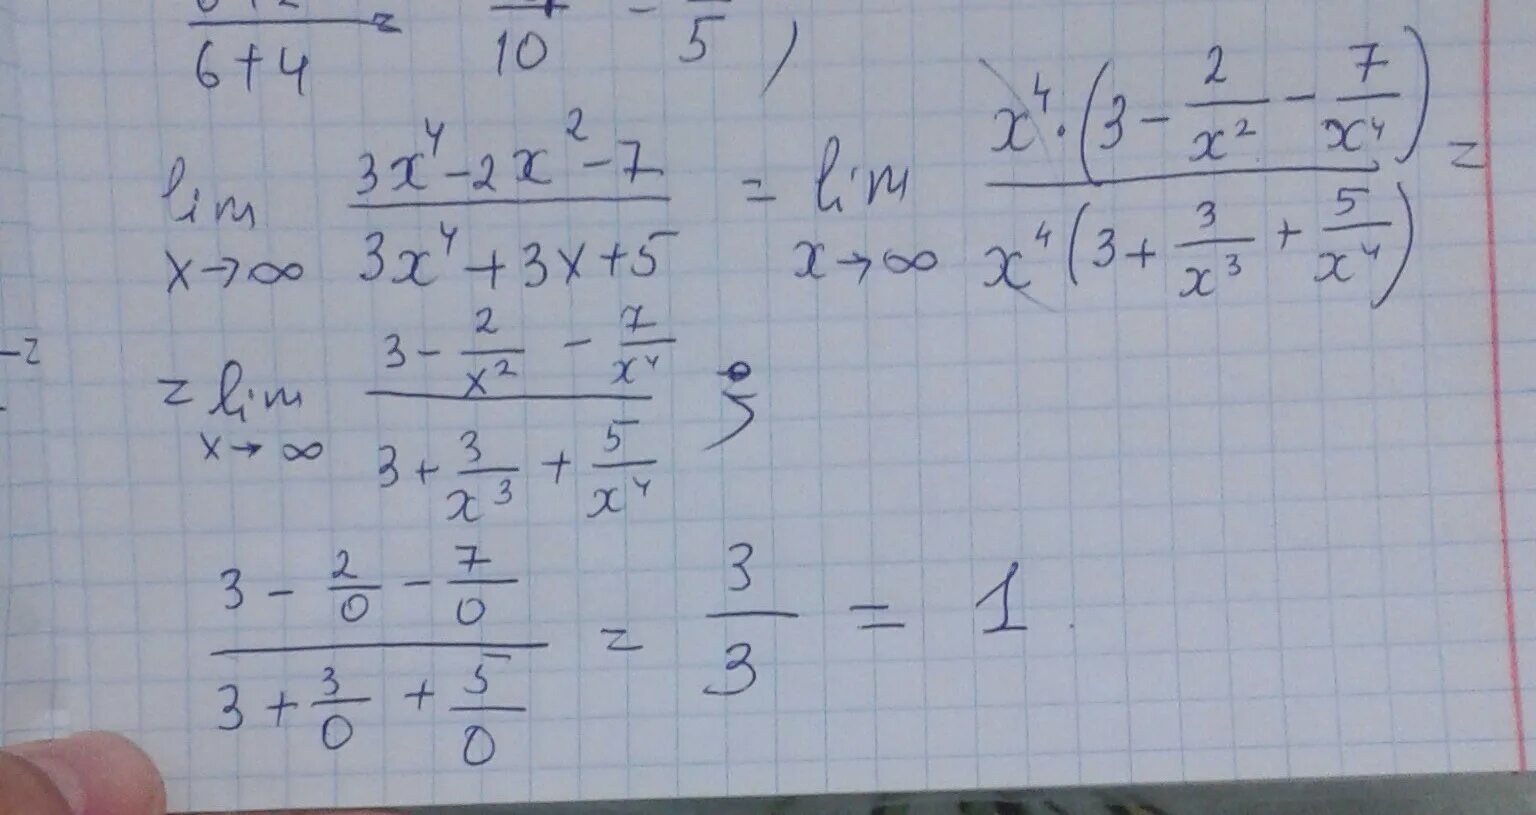 6+4 = 10 - 5 ,
lim x→∞ (3x⁴-2x²-7)/(3x⁴+3x+5) = lim x→∞ (x⁴·(3 - 2/x² - 7/x⁴))/(x⁴(3 + 3/x³ + 5/x⁴)) =
= lim x→∞ (3 - 2/x² - 7/x⁴)/(3 + 3/x³ + 5/x⁴) ;
(3 - 2/0 - 7/0)/(3 + 3/0 + 5/0) = 3/3 = 1